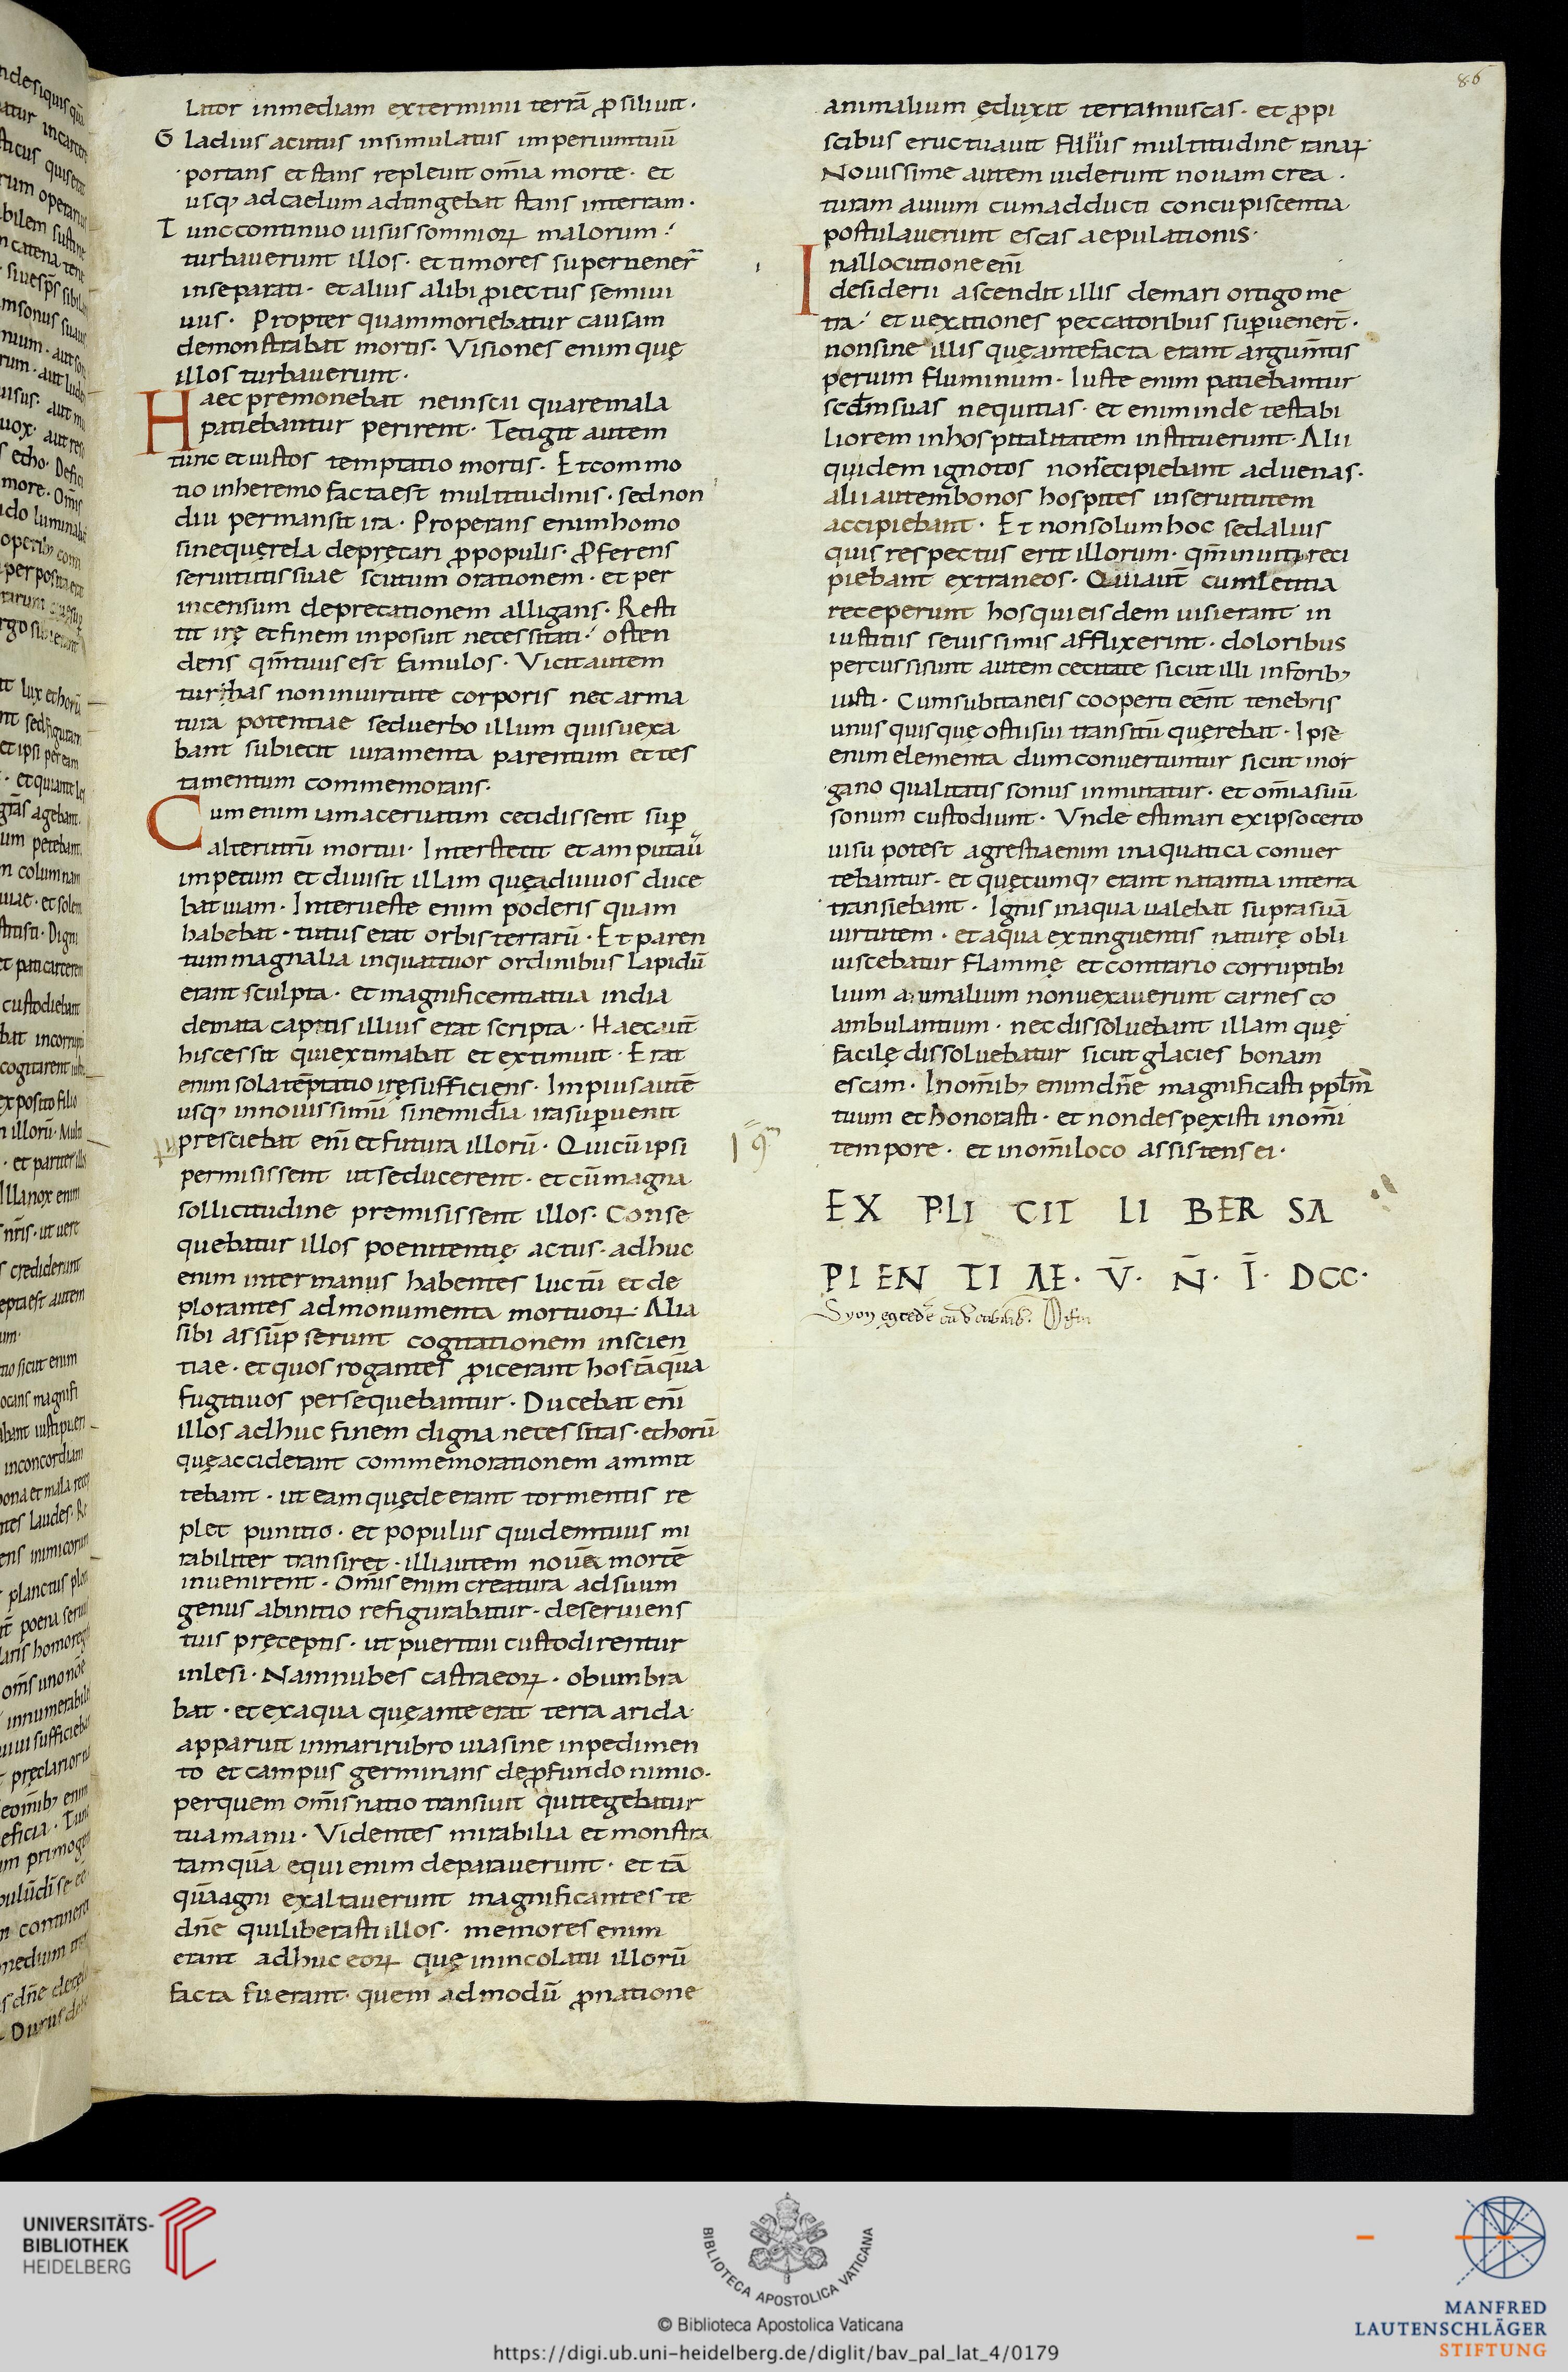 86
lator inmediam exterminii terrā ꝓsiliuit·
Gladius acutus insimulatus imperiumtuū
portans et stans repleuit om̄ia morte· et
usqꝫ adcaelum adtingebat stans interram·
Tunccontinuo uisussomnioꝝ malorum·
turbauerunt illos· ettimores superuener̄
inseparati· etalius alibi ꝓiectus semiui
uus· Propter quammoriebatur causam
demonstrabat mortis· Visiones enim quę
illos turbauerunt·
Haec premonebat neinscii quaremala
patiebantur perirent· Tetigit autem
tunc etiustos temptatio mortis· Etcommo
tio inheremo factaest multitudinis· sednon
diu permansit ira· Properans enimhomo
sinequęrela depręcari ꝓpopulis· ꝓferens
seruitutissuae scutum orationem· et per
incensum deprecationem alligans· Resti
tit irę etfinem inposuit necessitati· osten
dens qm̄tuusest famulos· Vicitautem
turbas noninuirtute corporis nec arma
tura potentiae seduerbo illum quisuexa
bant subiecit iuramenta parentum ettes
tamentum commemorans·
Cum enim iamaceruatim cecidissent suꝑ
alterutrū mortui· Interstetit et amputau̅
impetum et diuisit illam quęaduiuos duce
bat uiam· Inueste enim poderis quam
habebat· totus erat orbis terrarū· Et paren
tum magnalia inquattuor ordinibus lapidū
erant sculpta· et magnificentiatua india
demata capitis illius erat scripta· Haecaut̄
hiscessit quiextimabat et extimuit· Erat
enim solatēptatio iręsufficiens· Impiusautē
usqꝫ innouissimū sinemiđia irasuꝑuenit
presciebat eni̅ et futura illorū· Quicū ipsi
permisissent utseducerent· et cūmagna
sollicitudine premisissent illos· Conse
quebatur illos poenitentię actus· adhuc
enim intermanus habentes luctū et de
plorantes admonumenta mortuoꝝ· Alia
sibi assūpserunt cogitationem inscien
tiae· et quos rogantes ꝓicerant hostāquā
fugitiuos persequebantur· Ducebat eni̅
illos adhuc finem digna necessitas· ethorū
quęacciderant commemorationem ammit
tebant· ut eamquędeerant tormentis re
plet punitio· et populus quidemtuus mi
rabiliter transiret· illiautem nouā mortē
inuenirent· Om̄is enim creatura adsuum
genus abinitio refigurabatur· deseruiens
tuis pręceptis· ut pueritui custodirentur
inlesi· Namnubes castraeoꝝ· obumbra
bat· et exaqua quęante erat terra arida·
apparuit inmarirubro uiasine inpedimen
to et campus germinans deꝓfundo nimio·
perquem om̄isnatio transiuit quitegebatur
tuamanu· Videntes mirabilia et monstra
tamquā equi enim depatauerunt· et tā
quāagni exaltauerunt magnificantes te
dn̄e quiliberasti illos· memores enim
erant adhuc eoꝝ quę inincolatu illorū
facta fuerant· quem admodū ꝓnatione
animalium ęduxit terramuscas· et ꝓpi
scibus eructuauit fluuius multitudine ranaꝝ·
Nouissime autem uiderunt nouam crea·
turam auium cumadducti concupiscentia
postulauerunt escas aepulationis·
Inallocutione eni̅
desiderii ascendit illis demari ortigome
tra· et uexationes peccatoribus suꝑuenert̄·
nonsine illis quęantefacta erant argumt̄is
peruim fluminum· Iuste enim patiebantur
scđmsuas nequitias· et enim inde testabi
liorem inhospitalitatem instituerunt· Alii
quidem ignotos nonrecipiebant aduenas·
alii autembonos hospites inseruitutem
accipiebant· Et nonsolumhoc sedalius
quis respectus erit illorum· qm̄inuiti reci
piebant extraneos· Quiaut̄ cumletitia
receperunt hosquieisdem uisierant in
iustitiis seuissimis afflixerunt· doloribus
percussisunt autem cecitate sicut illi inforibꝫ
iusti· Cumsubitaneis cooperti eēnt tenebris
unus quisquę ostiisui transitū quęrebat· Ipse
enim elementa dumconuertuntur sicut inor
gano qualitatis sonus inmutatur· et om̄iasuū
sonum custodiunt· Vnde estimari exipsocerto
uisu potest agrestiaenim inaquatica conuer
tebantur· et quęcumqꝫ erant natantia interra
transiebant· Ignis inaqua ualebat suprasuā
uirtutem· etaqua extinguentis naturę obli
uiscebatur flammę et contrario corruptibi
lium animalium nonuexauerunt carnes co
ambulantium· necdissoluebant illam quę
facilę dissoluebatur sicut glacies bonam
escam· Inom̄ibꝫ enim dn̄e magnificasti pp̄lm̄
tuum et honorasti· et nondespexisti inom̄i
tempore· et inom̄iloco assistens ei·
EX PLI CIT LI BER SA
PI EN TI AE· V̄· N̄· Ī· DCC·
UNIVERSITÄTS-
BIBLIOTHEK
HEIDELBERG
BIBLIOTECA APOSTOLICA VATICANA
© Biblioteca Apostolica Vaticana
https://digi.ub.uni-heidelberg.de/diglit/bav_pal_lat_4/0179
MANFRED
LAUTENSCHLÄGER
STIFTUNG